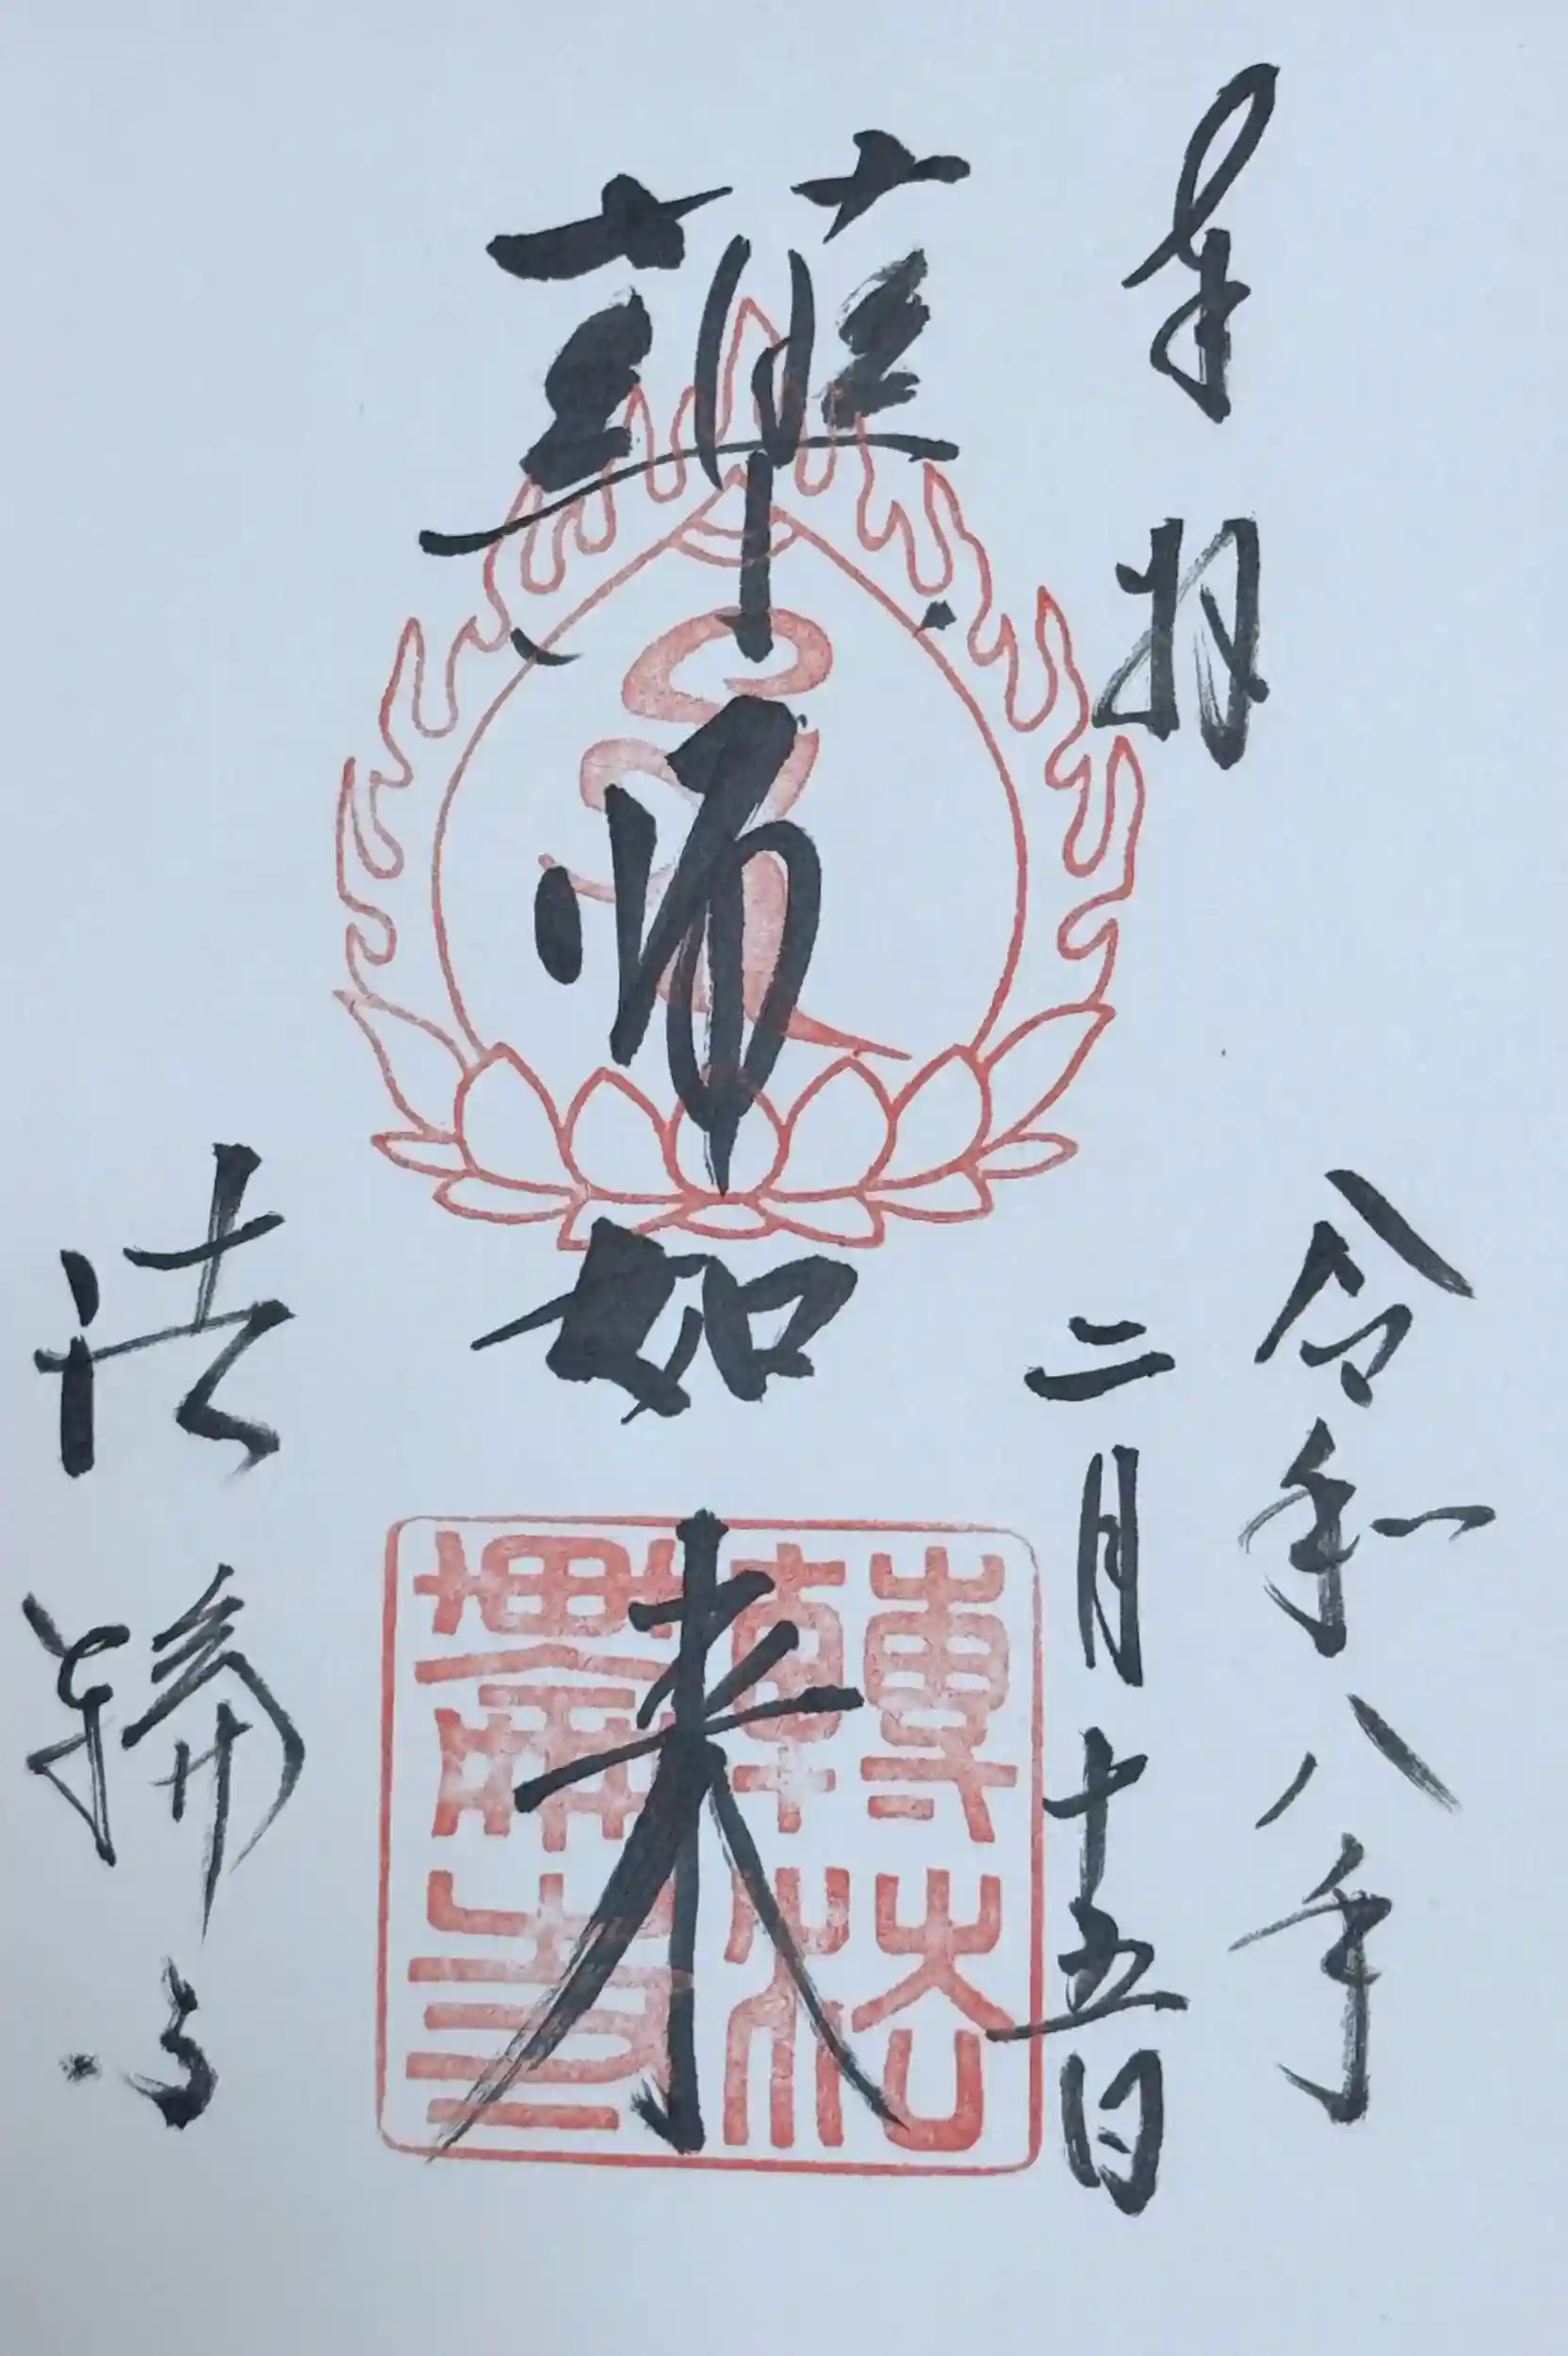 奉拝
令和八年
二月十五日
薬師如来
法輪寺